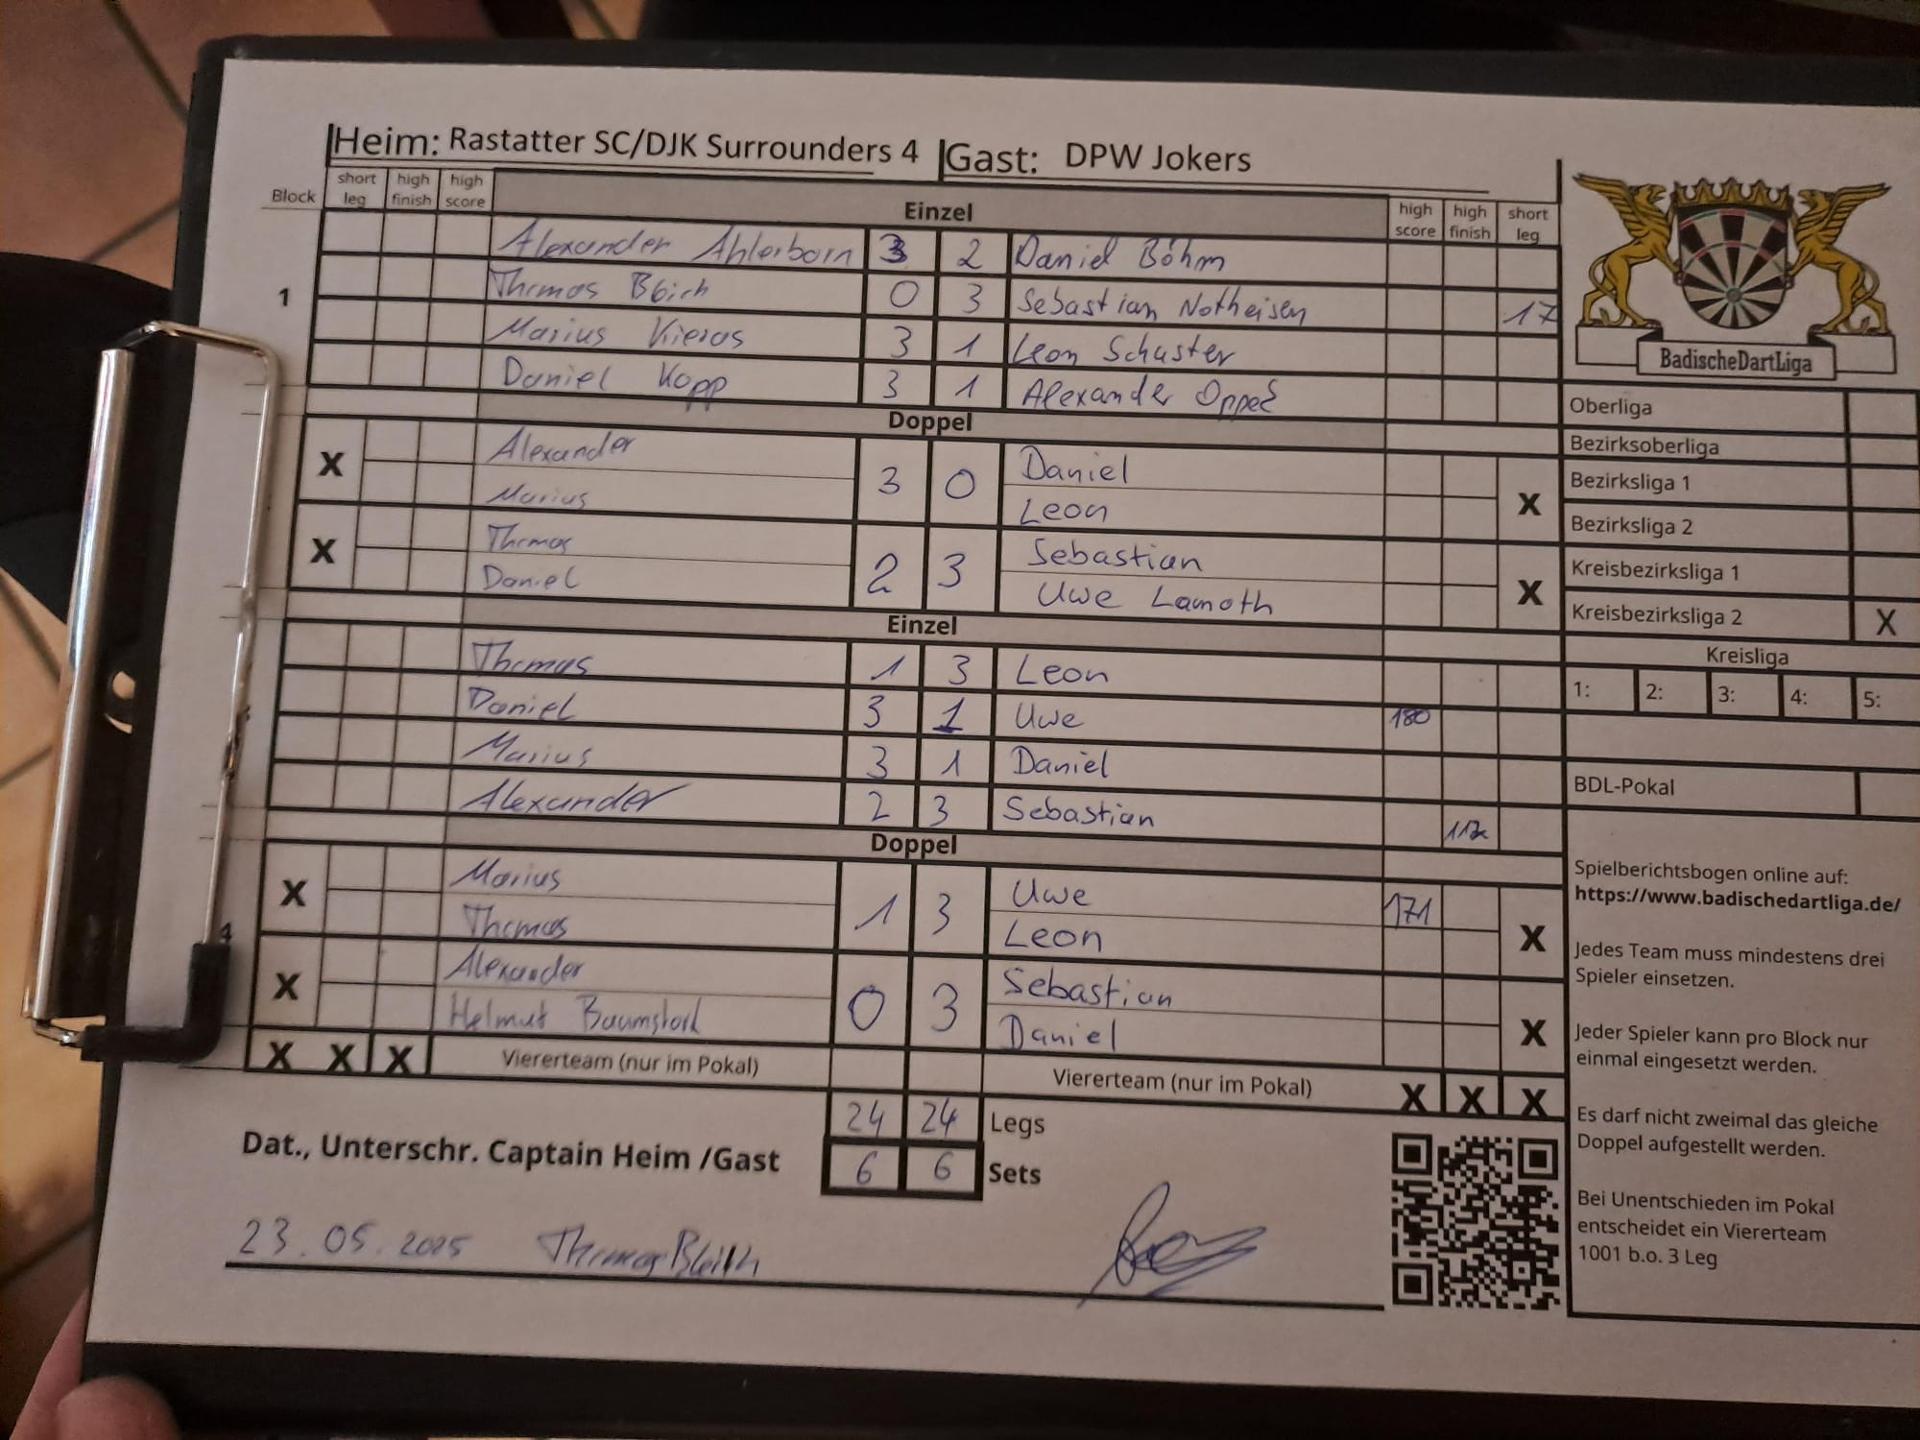 Heim: Rastatter SC/DJK Surrounders 4 Gast: DPW Jokers
Block short leg high finish high score Einzel high score high finish short leg
Alexander Ahlerborn 3 2 Daniel Böhm
1 Thomas 0 3 Sebastian Notheisen 17
Marius Kieras 3 1 Leon Schuster
Daniel Kopp 3 1 Alexander
BadischeDartLiga
Doppel
X Alexander 3 0 Daniel X
Marius Leon
X Thomas 2 3 Sebastian X
Daniel Uwe Lamoth
Einzel
Thomas 1 3 Leon
Daniel 3 1 Uwe 180
Marius 3 1 Daniel
Alexander 2 3 Sebastian
Doppel
X Marius 1 3 Uwe 171 X
Thomas Leon
4
X Alexander 0 3 Sebastian X
Helmut Daniel
X X X Viererteam (nur im Pokal) Viererteam (nur im Pokal) X X X
24 24 Legs
Dat., Unterschr. Captain Heim /Gast 6 6 Sets
23.05.2025 Thomas
Oberliga
Bezirksoberliga
Bezirksliga 1
Bezirksliga 2
Kreisbezirksliga 1
Kreisbezirksliga 2 X
Kreisliga
1: 2: 3: 4: 5:
BDL-Pokal
Spielberichtsbogen online auf:
https://www.badischedartliga.de/
Jedes Team muss mindestens drei
Spieler einsetzen.
Jeder Spieler kann pro Block nur
einmal eingesetzt werden.
Es darf nicht zweimal das gleiche
Doppel aufgestellt werden.
Bei Unentschieden im Pokal
entscheidet ein Viererteam
1001 b.o. 3 Leg